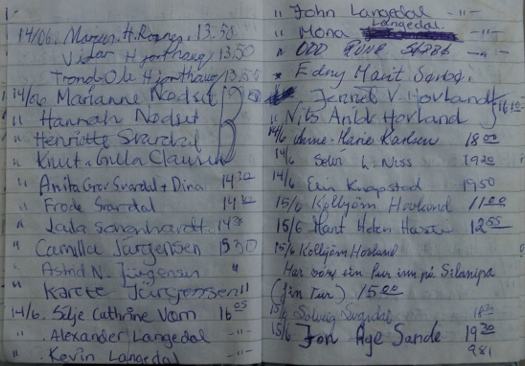 14/06. Marcus.H. 13.50
" Vidar Hjorthaug 13.50
Trond-Ole Hjorthaug 13.50
14/06 Marianne Nødset
" Hannah Nødset
" Henriette Svardal
" Knut + Gulla
" Anita Grov Svardal + Dina 14
" Frode Svardal 14
" Laila 14
" Camilla Jørgensen 1530
" Astrid N. Jørgensen "
" Karete Jørgensen "
14/06. Silje Cathrine Vam 16 05
" Alexander Langedal -"-
" Kevin Langedal
" John Langedal -"-
" Mona Langedal -"-
" ODD RUNE -"-
" Edny Marit
Jennet V. Hovland
" Nils Arild Hovland 16
14/6 Anne-Marie Karlsen 18 00
14/6 L. Niss 19 20
14/6 Knapstad 19 50
15/6 Kolbjørn Hovland 11 00
15/6 Helen 12 55
15/6 Kolbjørn Hovland
Har vært ein tur inn på
(fin tur) 15 00
15/6 Solveig Svardal 18
15/6 Jon Åge Sande 19 30
981